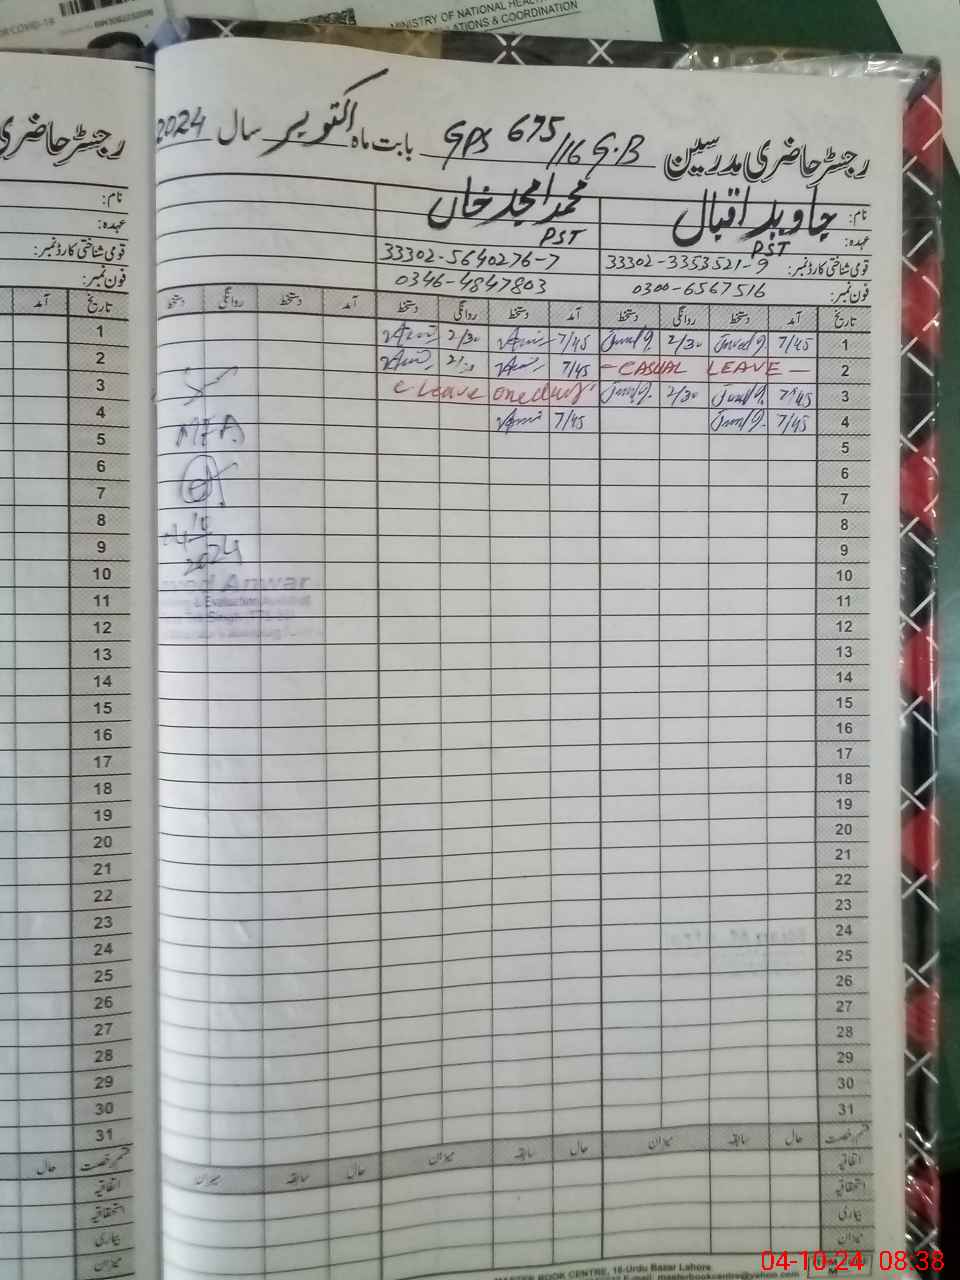 MINISTRY OF NATIONAL
& COORDINATION
رجسٹر حاضری مدرسین GPS 675/16 G.B بابت ماہ اکتوبر سال 2024
نام: جاوید اقبال محمد امجد خاں
عہدہ: PST PST
قومی شناختی کارڈ نمبر: 33302-3353521-9 33302-5640276-7
فون نمبر: 0300-6567516 0346-4847803
تاریخ آمد دستخط روانگی دستخط آمد دستخط روانگی دستخط آمد دستخط روانگی دستخط
1 7/45 2/30 7/45 2/30
2 — CASUAL LEAVE — 7/45
3 7/45 2/30 Leave
4 7/45 7/45
5
6
7
8
9
10
11
12
13
14
15
16
17
18
19
20
21
22
23
24
25
26
27
28
29
30
31
قسم رخصت حال سابقہ میزان حال سابقہ میزان حال سابقہ میزان
اتفاقیہ
استحقاقیہ
بیماری
میزان
MEA
2024
Anwar
& Evaluation
رجسٹر حاضری
نام:
عہدہ:
قومی شناختی کارڈ نمبر:
فون نمبر:
تاریخ آمد
1
2
3
4
5
6
7
8
9
10
11
12
13
14
15
16
17
18
19
20
21
22
23
24
25
26
27
28
29
30
31
قسم رخصت حال
اتفاقیہ
استحقاقیہ
بیماری
میزان
MASTER BOOK CENTRE, 16-Urdu Bazar Lahore
E-mail: masterbookcentre@yahoo.com
04-10-24 08:38